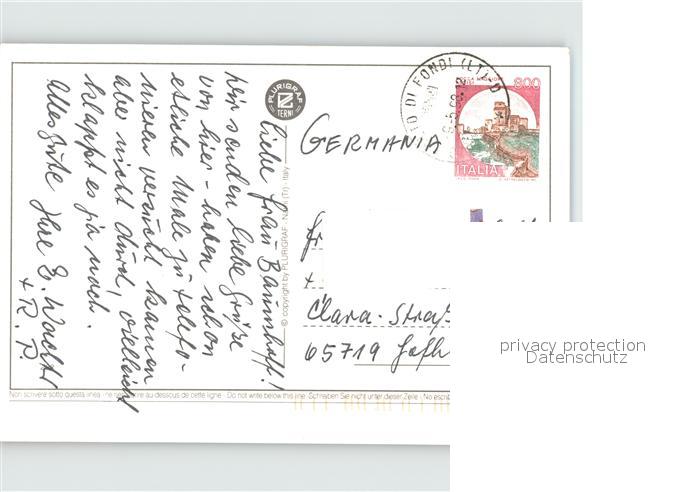 Liebe Frau Baumhoff!
Wir senden liebe Grüße
von hier - haben schon
etliche Male zu telefo-
nieren versucht kamen
aber nicht durch, vielleicht
klappt es ja noch.
Alles Gute Ihre E. Wachter
+ R. R
PLURIGRAF
TERNI
© copyright by PLURIGRAF - Narni (Tr) - Italy
GERMANIA
DI FONDI (LT)
800
ITALIA
Fr
+
Clara-Straß
65719 Hofh
Non scrivere sotto questa linea - ne pas écrire au-dessous de cette ligne - Do not write below this line. Schreiben Sie nicht unter dieser Zeile - No escrib
privacy protection
Datenschutz